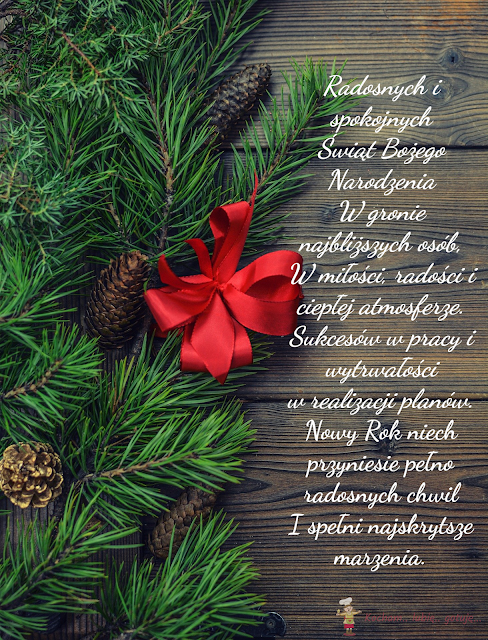 Radosnych i
spokojnych
Świąt Bożego
Narodzenia
W gronie
najbliższych osób,
W miłości, radości i
ciepłej atmosferze.
Sukcesów w pracy i
wytrwałości
w realizacji planów.
Nowy Rok niech
przyniesie pełno
radosnych chwil
I spełni najskrytsze
marzenia.